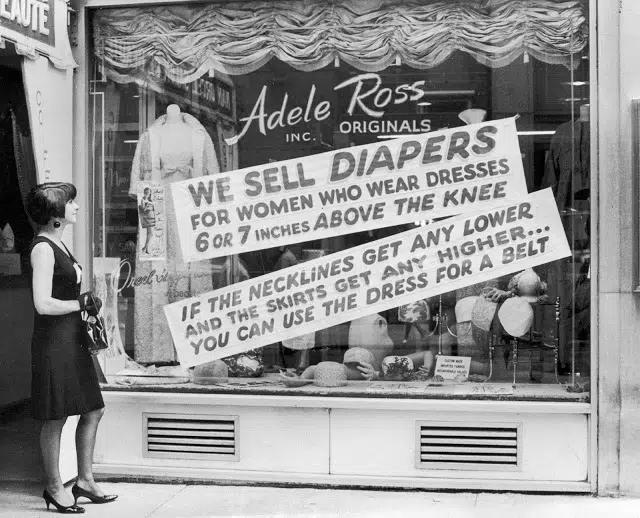 EAUTÉ
Adele Ross
INC. ORIGINALS
WE SELL DIAPERS
FOR WOMEN WHO WEAR DRESSES
6 OR 7 INCHES ABOVE THE KNEE
IF THE NECKLINES GET ANY LOWER
AND THE SKIRTS GET ANY HIGHER...
YOU CAN USE THE DRESS FOR A BELT